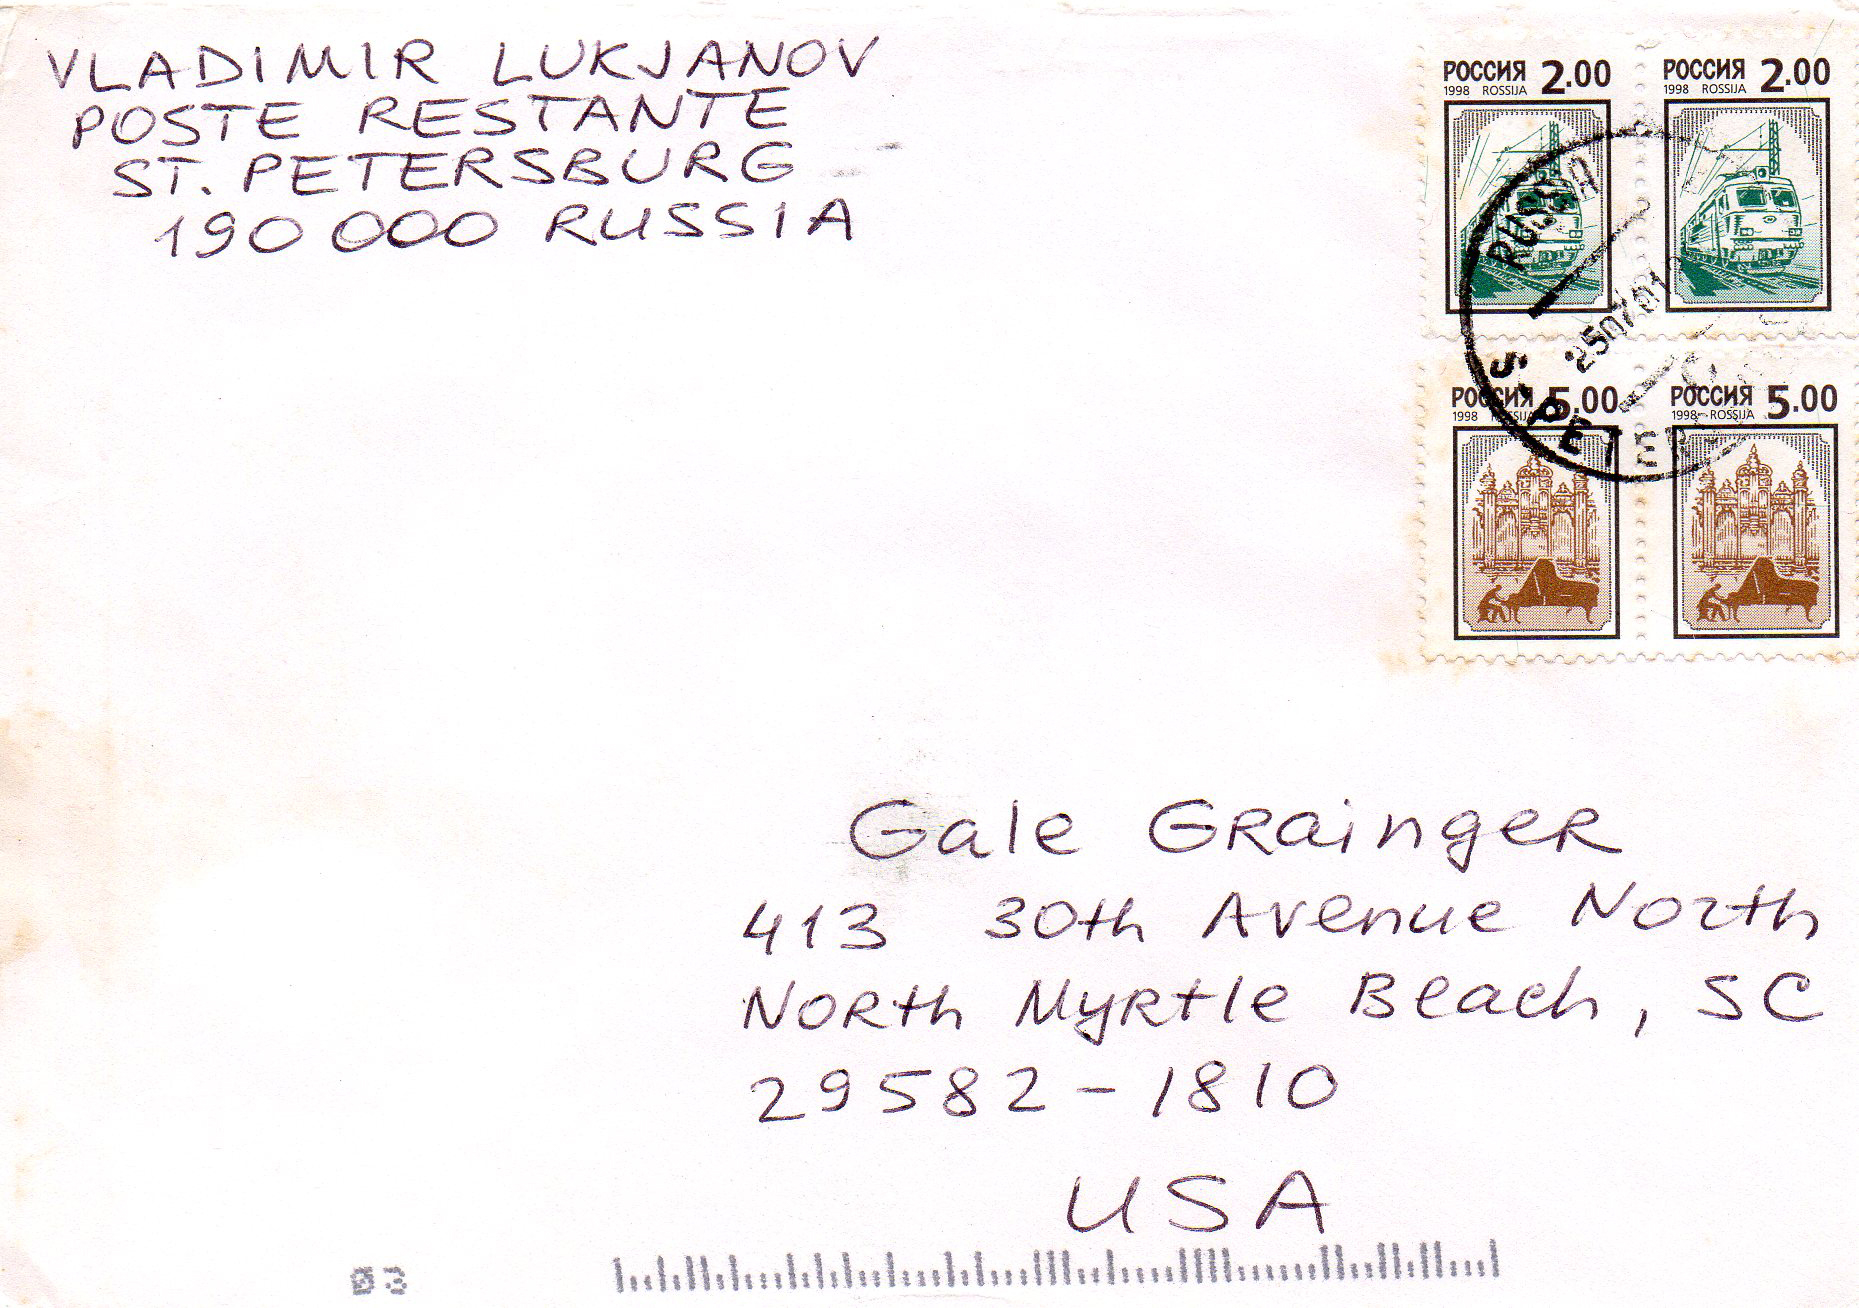 VLADIMIR LUKJANOV
POSTE RESTANTE
ST. PETERSBURG
190 000 RUSSIA
РОССИЯ 2.00
1998 ROSSIJA
РОССИЯ 2.00
1998 ROSSIJA
RUSSIA
250701
S. PETER
РОССИЯ 5.00
1998 ROSSIJA
РОССИЯ 5.00
1998 ROSSIJA
Gale Grainger
413 30th Avenue North
North Myrtle Beach, SC
29582-1810
USA
03